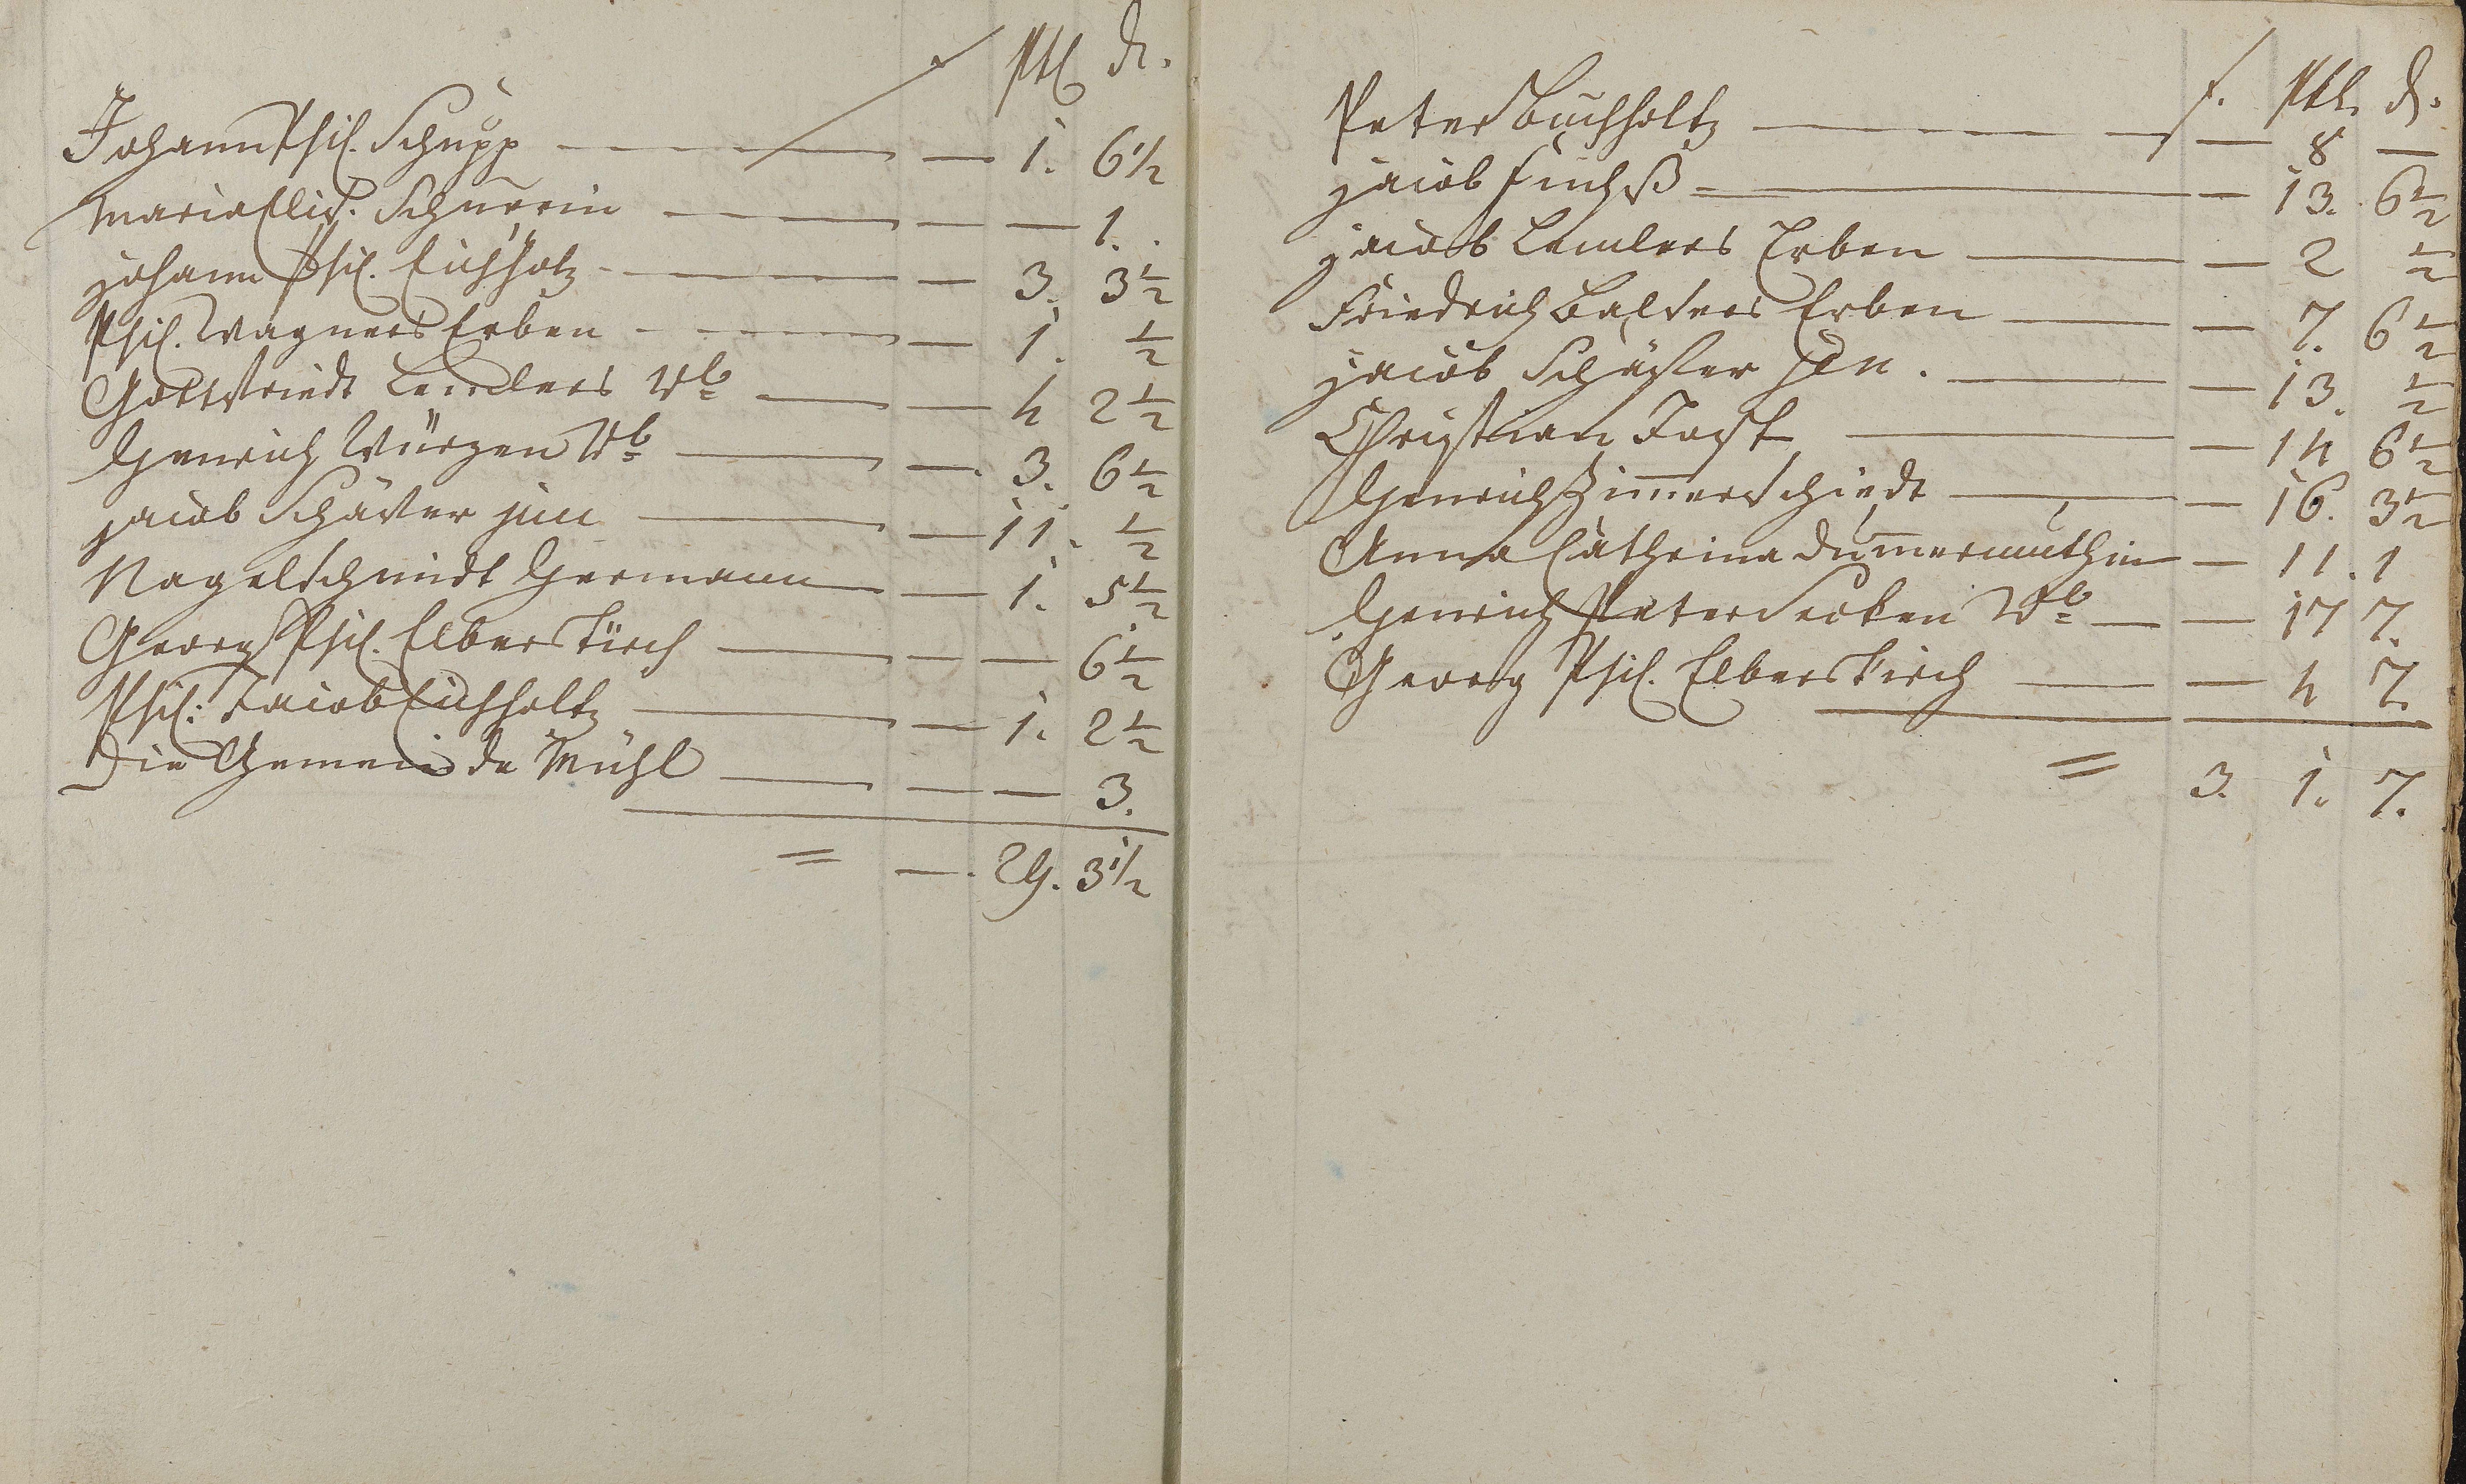 f Stbl d.
Johann Phil. Schupp — 1. 6 1/2
Maria Elis. Schnorrin — 1.
Johann Phil. Eichholz — 3. 3 1/2
Phil. Wagners Erben — 1. 1/2
Gottfriedt Lemlers Wb — 4 2 1/2
Henrich Würgen Wb — 3. 6 1/2
Jacob Schäffer jun — 11. 1/2
Nagelschmidt Hermann — 1. 5 1/2
Georg Phil. Elberskirch — 6 1/2
Phil: Jacob Eichholtz — 1. 2 1/2
Die Gemeinde Mühl — 3.
= — 29. 3 1/2
f. Stbl. d.
Peter Buchholtz — 8 —
Jacob Fuchß — 13. 6 1/2
Jacob Lemlers Erben — 2 1/2
Friedrich Balsers Erben — 7. 6 1/2
Jacob Schäffer sen. — 13. 1/2
Christian Fast — 14 6 1/2
Henrich Zimmerschiedt — 16. 3 1/2
Anna Catharina Dummermuthin — 11. 1
Henrich Peter Wb — 17 7.
Georg Phil. Elberskirch — 4 7.
= 3. 1. 7.